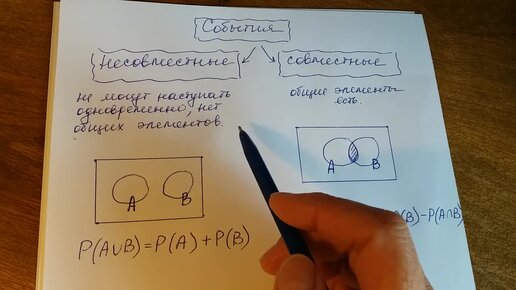 События
Несовместные
совместные
не могут наступать
одновременно, нет
общих элементов.
общие элементы
есть.
A
B
A
B
P(A∪B)=P(A)+P(B)
(B)-P(A∩B)